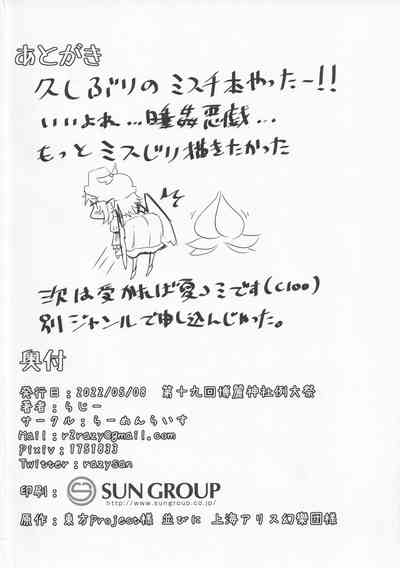 あとがき
久しぶりのミスチ本やったー!!
いいよね…睡姦悪戯…
もっとミスじり描きたかった
次は受かれば夏コミです(C100)
別ジャンルで申し込んじゃった。
奥付
発行日：2022/05/08　第十九回博麗神社例大祭
著者：らじー
サークル：らーめんらいす
Mail：r2razy@gmail.com
Pixiv：1751833
Twitter：razysan
印刷：
SUN GROUP
http://www.sungroup.co.jp/
原作：東方Project様 並びに 上海アリス幻樂団様